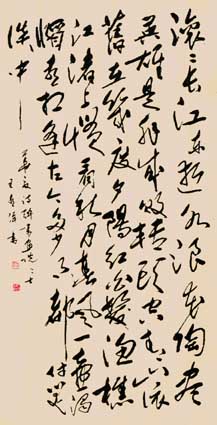 滚滚长江东逝水浪花淘尽
英雄是非成败转头空青山依
旧在几度夕阳红白发渔樵
江渚上惯看秋月春风一壶浊
酒喜相逢古今多少事都付笑
谈中